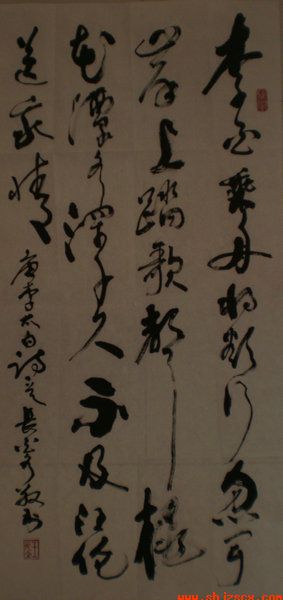 李白乘舟将欲行忽闻
岸上踏歌声桃
花潭水深千尺不及汪伦
送我情
唐李太白诗
www.shjzscx.com